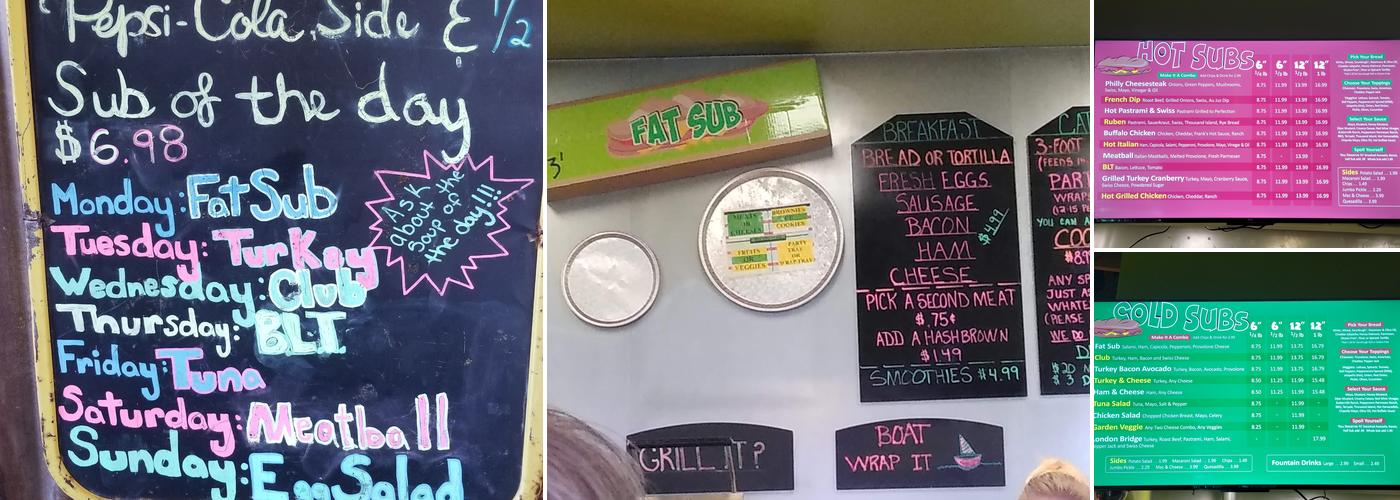 Pepsi-Cola, Side & 1/2
Sub of the day
$6.98
Monday: Fat Sub
Tuesday: Turkey
Wednesday: Club
Thursday: BLT
Friday: Tuna
Saturday: Meatball
Sunday: Egg Salad
Ask
about
Soup of the
the day!!!
3'
FAT SUB
MEATS
OR
CHEESES
BROWNIES
OR
COOKIES
FRUITS
OR
VEGGIES
PARTY
TRAY
OR
WRAP TRAY
BREAKFAST
BREAD OR TORTILLA
FRESH EGGS
SAUSAGE
BACON
HAM
CHEESE
$4.99
PICK A SECOND MEAT
$.75¢
ADD A HASHBROWN
$1.49
SMOOTHIES $4.99
CAT
3-FOOT
(FEEDS
PART
WRAPS
YOU CAN A
COO
$8.9
ANY SP
JUST AS
WHATE
(PLEASE
WE DO
GRILL IT?
BOAT
WRAP IT
HOT SUBS
Make It A Combo Add Chips & Drink for 2.99
6" 6" 12" 12"
1/4 lb 1/2 lb 1/2 lb 1 lb
Philly Cheesesteak Onions, Green Peppers, Mushrooms, Swiss, Mayo, Vinegar & Oil 8.75 11.99 13.99 16.99
French Dip Roast Beef, Grilled Onions, Swiss, Au Jus Dip 8.75 11.99 13.99 16.99
Hot Pastrami & Swiss Pastrami Grilled to Perfection 8.75 11.99 13.99 16.99
Ruben Pastrami, Sauerkraut, Swiss, Thousand Island, Rye Bread 8.75 11.99 13.99 16.99
Buffalo Chicken Chicken, Cheddar, Frank's Hot Sauce, Ranch 8.75 11.99 13.99 16.99
Hot Italian Ham, Capicola, Salami, Pepperoni, Provolone, Mayo, Vinegar & Oil 8.75 11.99 13.99 16.99
Meatball Italian Meatballs, Melted Provolone, Fresh Parmesan 8.75 - 13.99 -
BLT Bacon, Lettuce, Tomato 8.75 11.99 13.99 16.99
Grilled Turkey Cranberry Turkey, Mayo, Cranberry Sauce, Swiss Cheese, Powdered Sugar 8.75 11.99 13.99 16.99
Hot Grilled Chicken Chicken, Cheddar, Ranch 8.75 11.99 13.99 16.99
Pick Your Bread
Choose Your Toppings
Select Your Sauce
Spoil Yourself
Sides Potato Salad ... 1.99
Macaroni Salad ... 1.99
Chips ... 1.49
Jumbo Pickle ... 2.29
Mac & Cheese ... 3.99
Quesadilla ... 3.99
COLD SUBS
Make It A Combo Add Chips & Drink for 2.99
6" 6" 12" 12"
1/4 lb 1/2 lb 1/2 lb 1 lb
Fat Sub Salami, Ham, Capicola, Pepperoni, Provolone Cheese 8.75 11.99 13.75 16.79
Club Turkey, Ham, Bacon and Swiss Cheese 8.75 11.99 13.75 16.79
Turkey Bacon Avocado Turkey, Bacon, Avocado, Provolone 8.75 11.99 13.75 16.79
Turkey & Cheese Turkey, Any Cheese 8.50 11.25 11.99 15.48
Ham & Cheese Ham, Any Cheese 8.50 11.25 11.99 15.48
Tuna Salad Tuna, Mayo, Salt & Pepper 8.75 - 11.99 -
Chicken Salad Chopped Chicken Breast, Mayo, Celery 8.75 - 11.99 -
Garden Veggie Any Two Cheese Combo, Any Veggies 8.25 - 11.99 -
London Bridge Turkey, Roast Beef, Pastrami, Ham, Salami, Pepper Jack and Swiss Cheese - - - 17.99
Pick Your Bread
Choose Your Toppings
Select Your Sauce
Spoil Yourself
Sides Potato Salad ... 1.99 Macaroni Salad ... 1.99 Chips ... 1.49
Jumbo Pickle ... 2.29 Mac & Cheese ... 3.99 Quesadilla ... 3.99
Fountain Drinks Large ... 2.99 Small ... 2.49